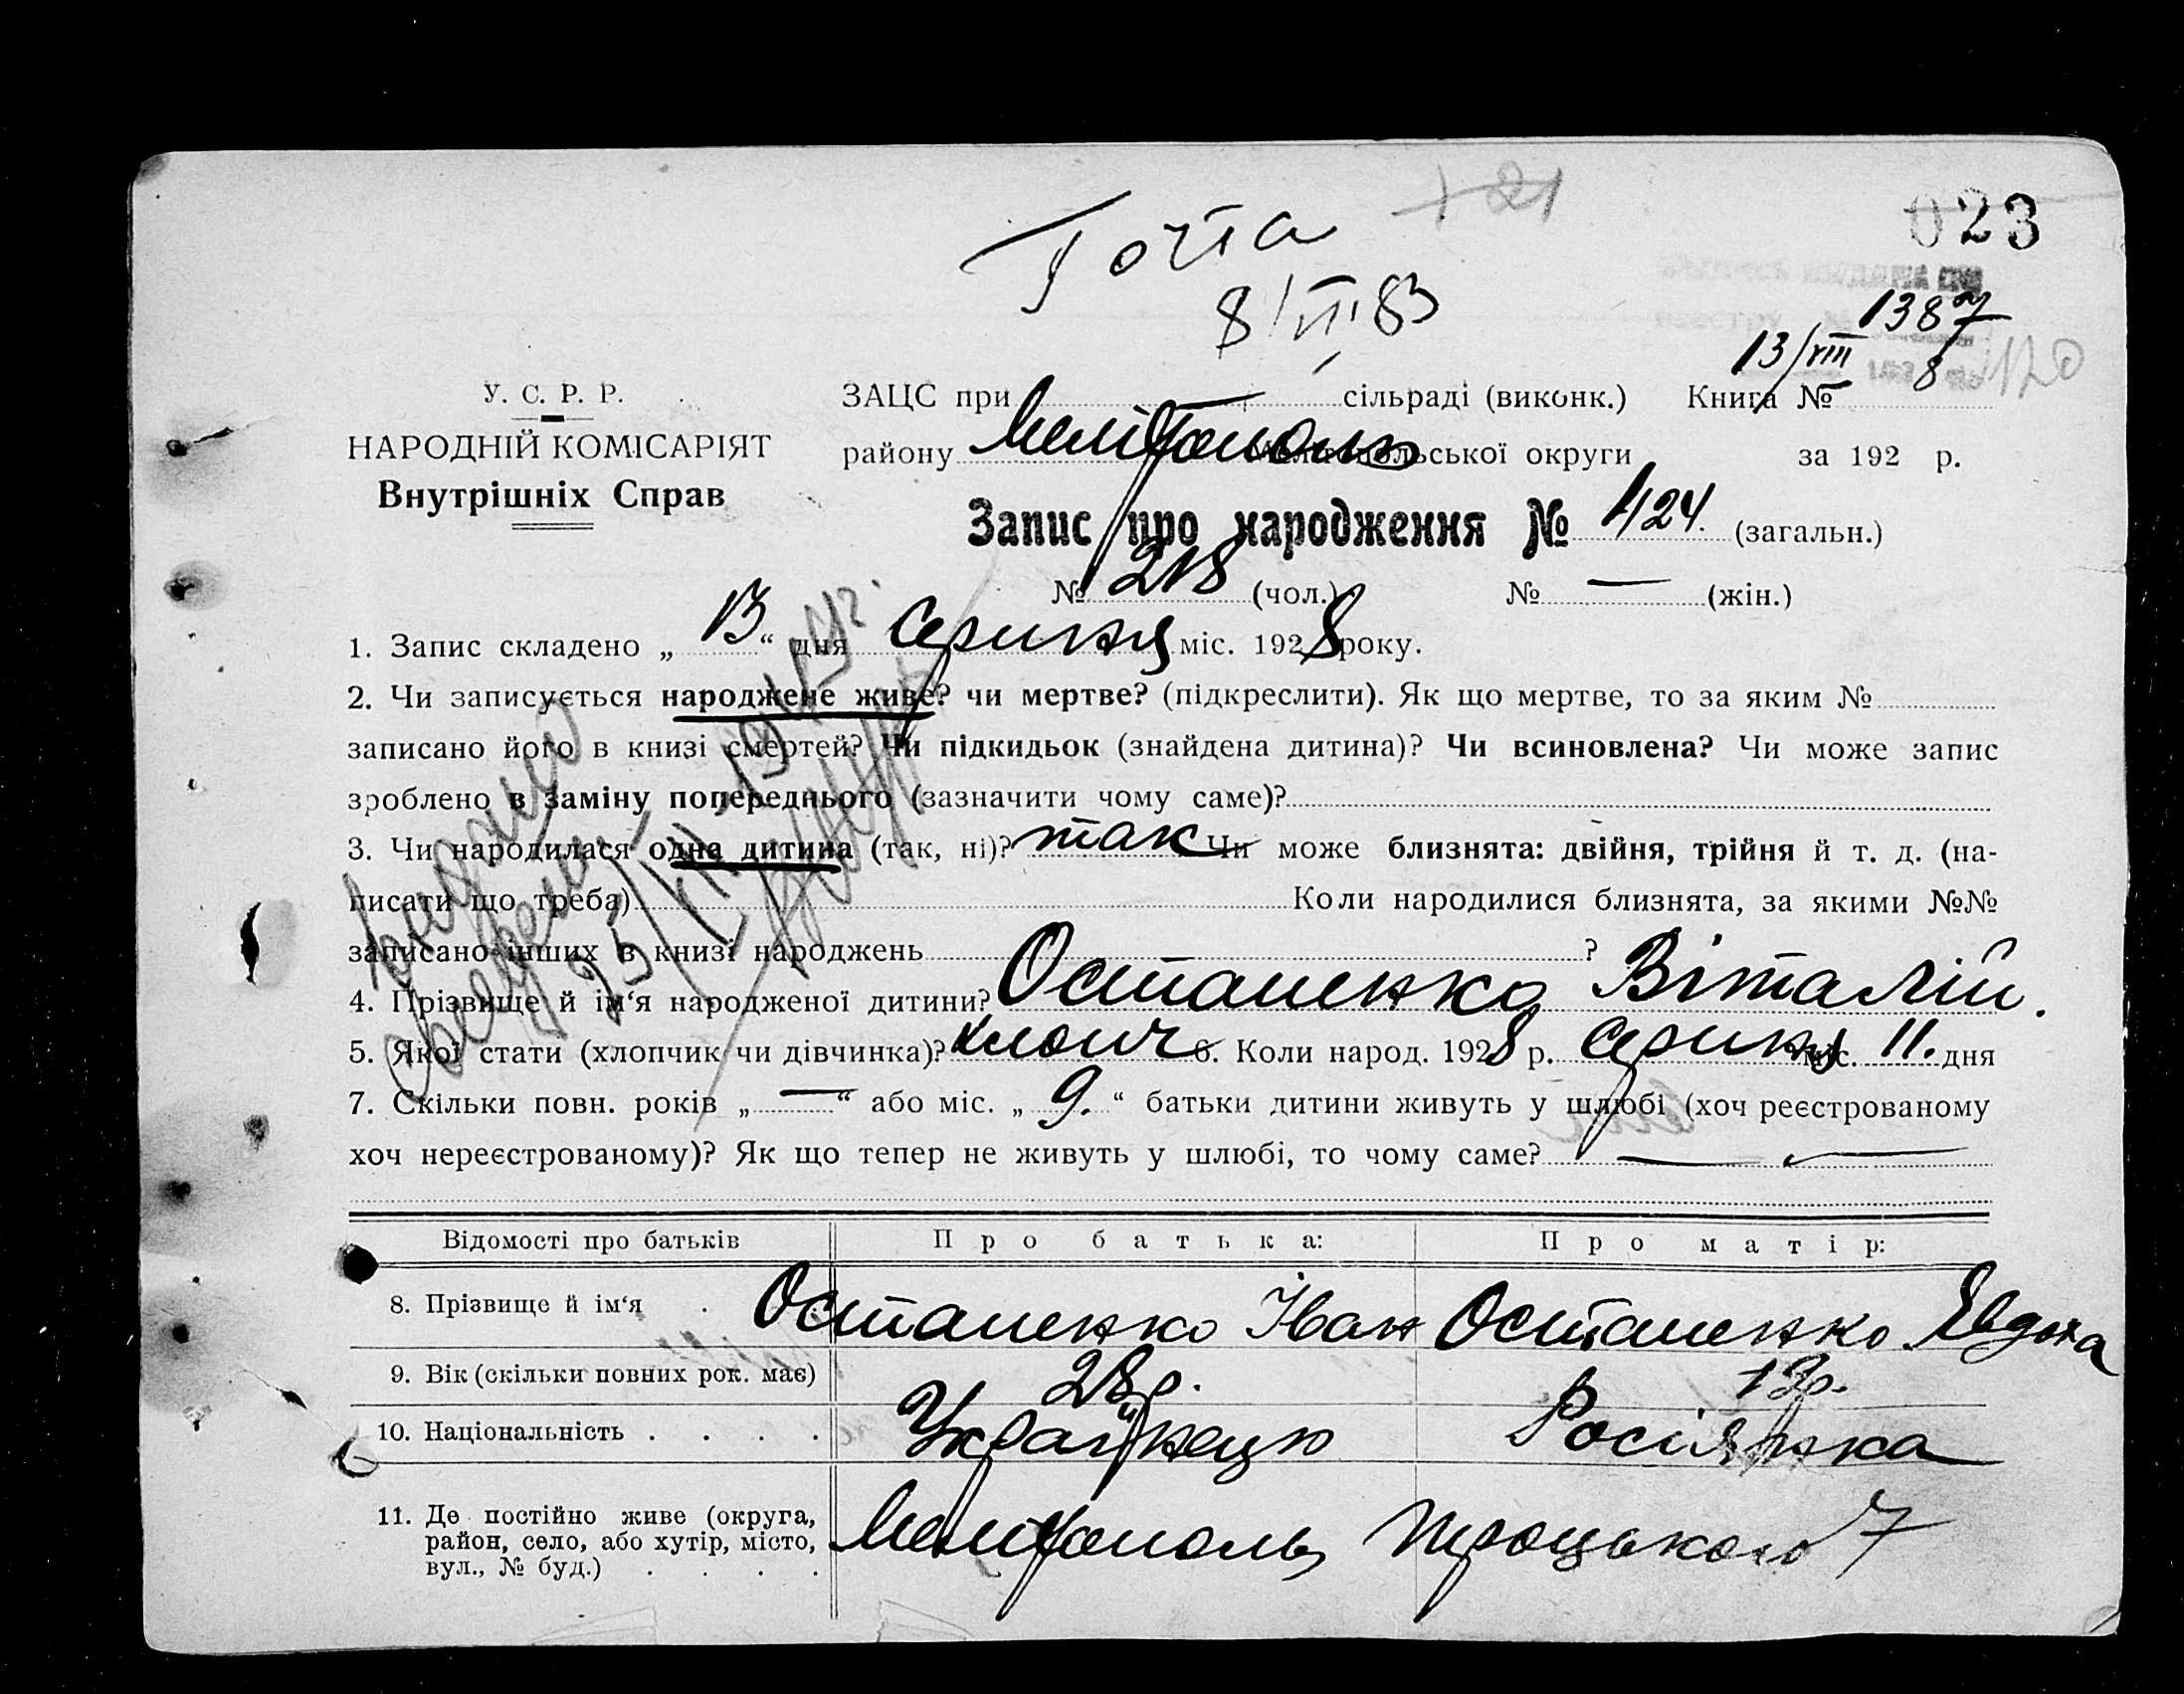 + 21
023
8/VII 83
1387
13/VIII 8
120
У. С. Р. Р.
НАРОДНІЙ КОМІСАРІЯТ
Внутрішніх Справ
ЗАЦС при сільраді (виконк.) Книга №
району Мелітополь Мелітопольської округи за 192 р.
Запис про народження № 424. (загальн.)
№ 218 (чол.) № — (жін.)
1. Запис складено „ 13 “ дня Серпня міс. 1928 року.
2. Чи записується народжене живе? чи мертве? (підкреслити). Як що мертве, то за яким №
записано його в книзі смертей? Чи підкидьок (знайдена дитина)? Чи всиновлена? Чи може запис
зроблено в заміну попереднього (зазначити чому саме)?
3. Чи народилася одна дитина (так, ні)? так Чи може близнята: двійня, трійня й т. д. (на-
писати що треба) Коли народилися близнята, за якими №№
записано інших в книзі народжень ?
4. Прізвище й ім‘я народженої дитини? Остапенко Віталій.
5. Якої стати (хлопчик чи дівчинка)? хлопч 6. Коли народ. 1928 р. Серпня міс. 11. дня
7. Скільки повн. років „ — “ або міс. „ 9. “ батьки дитини живуть у шлюбі (хоч реєстрованому
хоч нереєстрованому)? Як що тепер не живуть у шлюбі, то чому саме? —
Відомості про батьків Про батька: Про матір:
8. Прізвище й ім‘я . Остапенко Іван Остапенко Явдоха
9. Вік (скільки повних рок. має) 28 р. 19 р.
10. Національність . . . . Українець Росіянка
11. Де постійно живе (округа,
район, село, або хутір, місто,
вул., № буд.) . . . .
Мелітополь Троцького 7